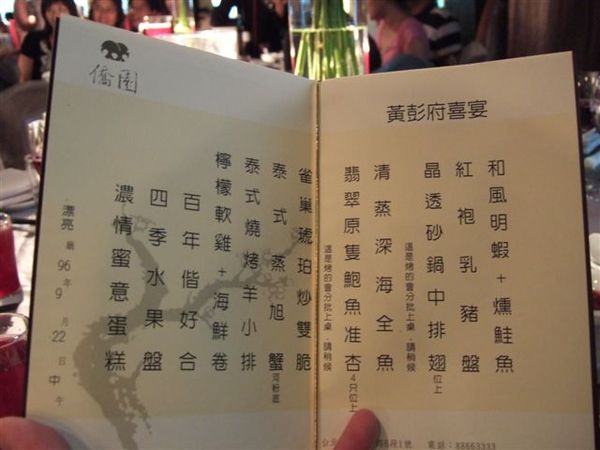 黃彭府喜宴
和風明蝦+燻鮭魚
紅袍乳豬盤
晶透砂鍋中排翅位上
這是烤的會分批上桌，請稍候
清蒸深海全魚
翡翠原隻鮑魚准杏4只位上
這是烤的會分批上桌，請稍候
電話：88663333
僑園
雀巢琥珀炒雙脆
泰式蒸旭蟹河粉底
泰式燒烤羊小排
檸檬軟雞+海鮮卷
百年偕好合
四季水果盤
濃情蜜意蛋糕
漂亮廳 96年9月22日中午